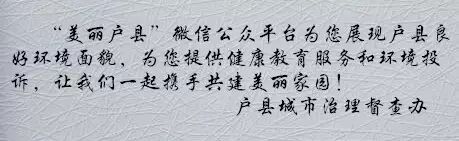 “美丽户县”微信公众平台为您展现户县良
好环境面貌，为您提供健康教育服务和环境投
诉，让我们一起携手共建美丽家园！
户县城市治理督查办